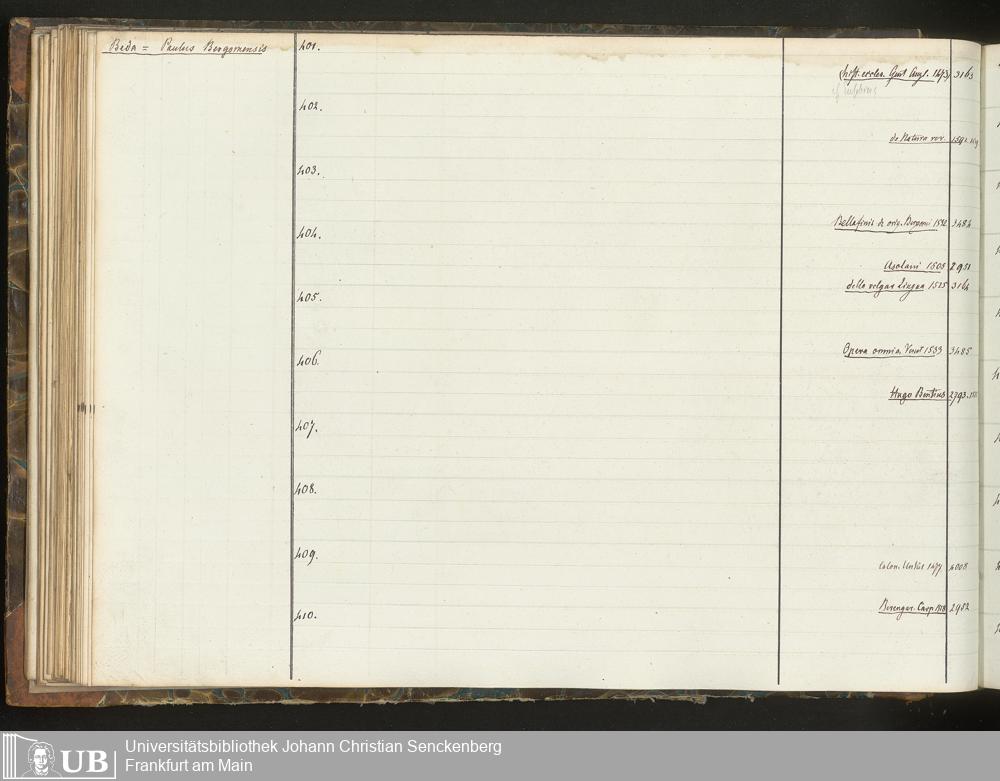 Beda = Paulus Bergomensis
401.
hist. eccles. Gent. Angl. 1473 3163
402.
de Natura rer. 1592.
403.
Bellafinis de orig. Bergomi 1532 3484
404.
Asolani 1505 2951
della volgar Lingua 1525 3164
405.
Opera omnia. Venet 1533 3485
406.
Hugo Bentius 2793.
407.
408.
409.
Colon. 1477 4008
Berengar. Carp. 1518 2952
410.
Universitätsbibliothek Johann Christian Senckenberg
Frankfurt am Main
UB